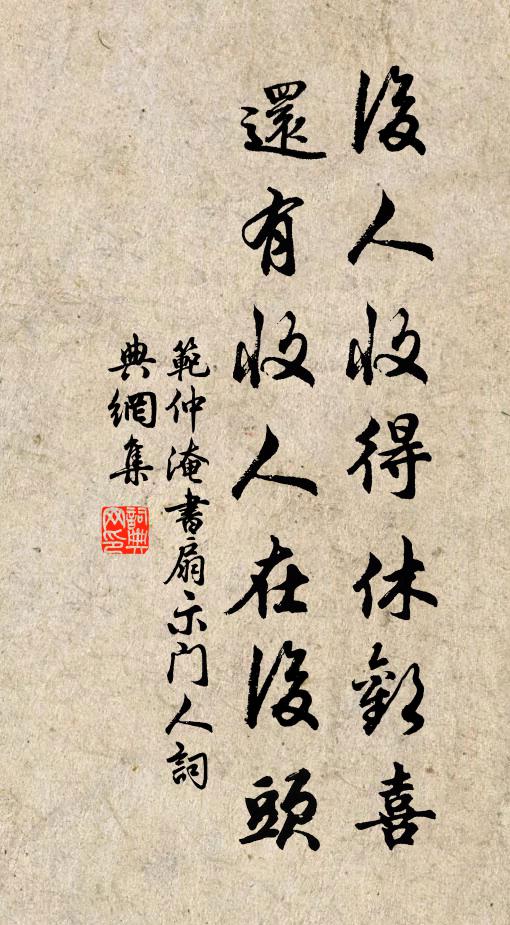 後人收得休歡喜
還有收人在後頭
範仲淹書扇示门人詞
典網集
詞典
网印